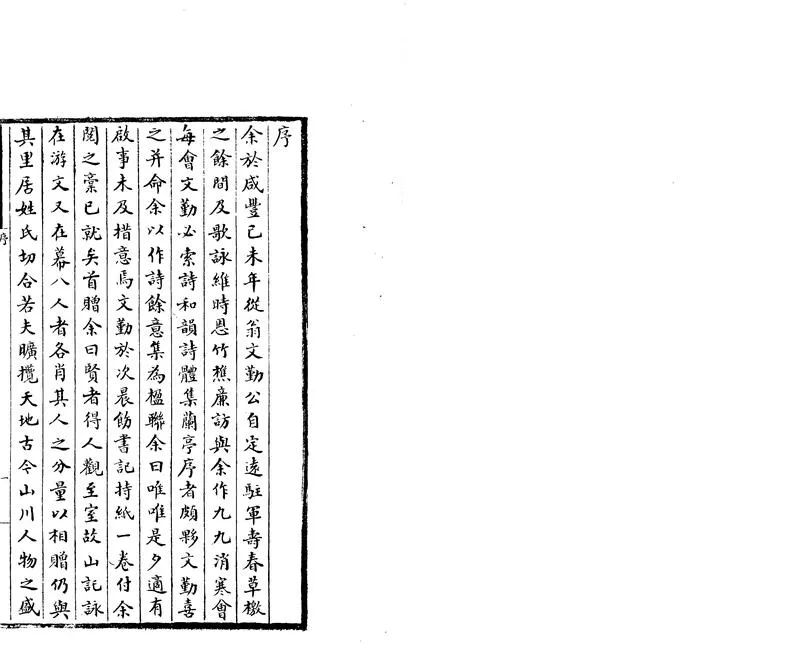 序
余於咸豐己未年從翁文勤公自定遠駐軍壽春草檄
之餘間及歌詠維時恩竹樵廉訪與余作九九消寒會
每會文勤必索詩和韻詩體集蘭亭序者頗夥文勤喜
之并命余以作詩餘意集為楹聯余曰唯唯是夕適有
啟事未及措意焉文勤於次晨飭書記持紙一卷付余
閱之稾已就矣首贈余曰賢者得人觀至室故山記詠
在游文又在幕八人者各肖其人之分量以相贈仍與
其里居姓氏切合若夫曠攬天地古今山川人物之盛
序
一